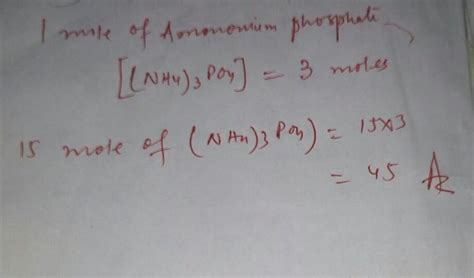 1 mole of Ammonium phosphate
[(NH4)3PO4] = 3 moles
15 mole of (NH4)3PO4) = 15×3
= 45 Az